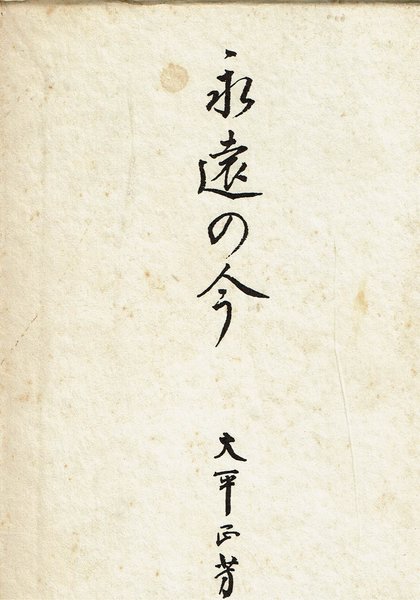 永遠の今
大平正芳